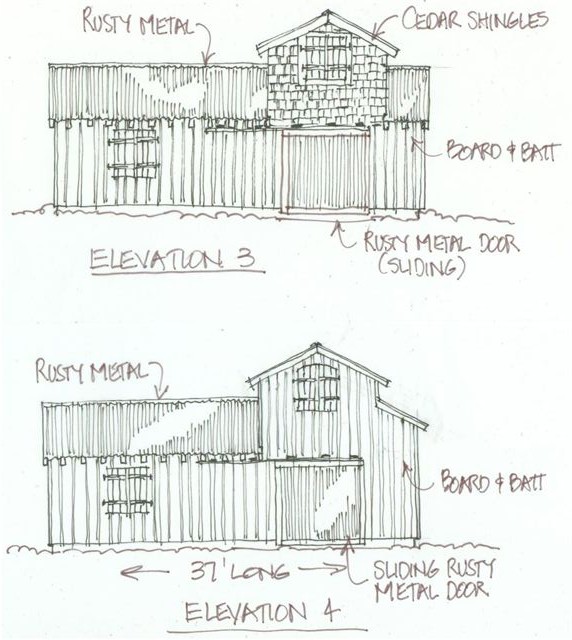 RUSTY METAL
CEDAR SHINGLES
BOARD & BATT
RUSTY METAL DOOR
(SLIDING)
ELEVATION 3
RUSTY METAL
BOARD & BATT
37' LONG
SLIDING RUSTY
METAL DOOR
ELEVATION 4